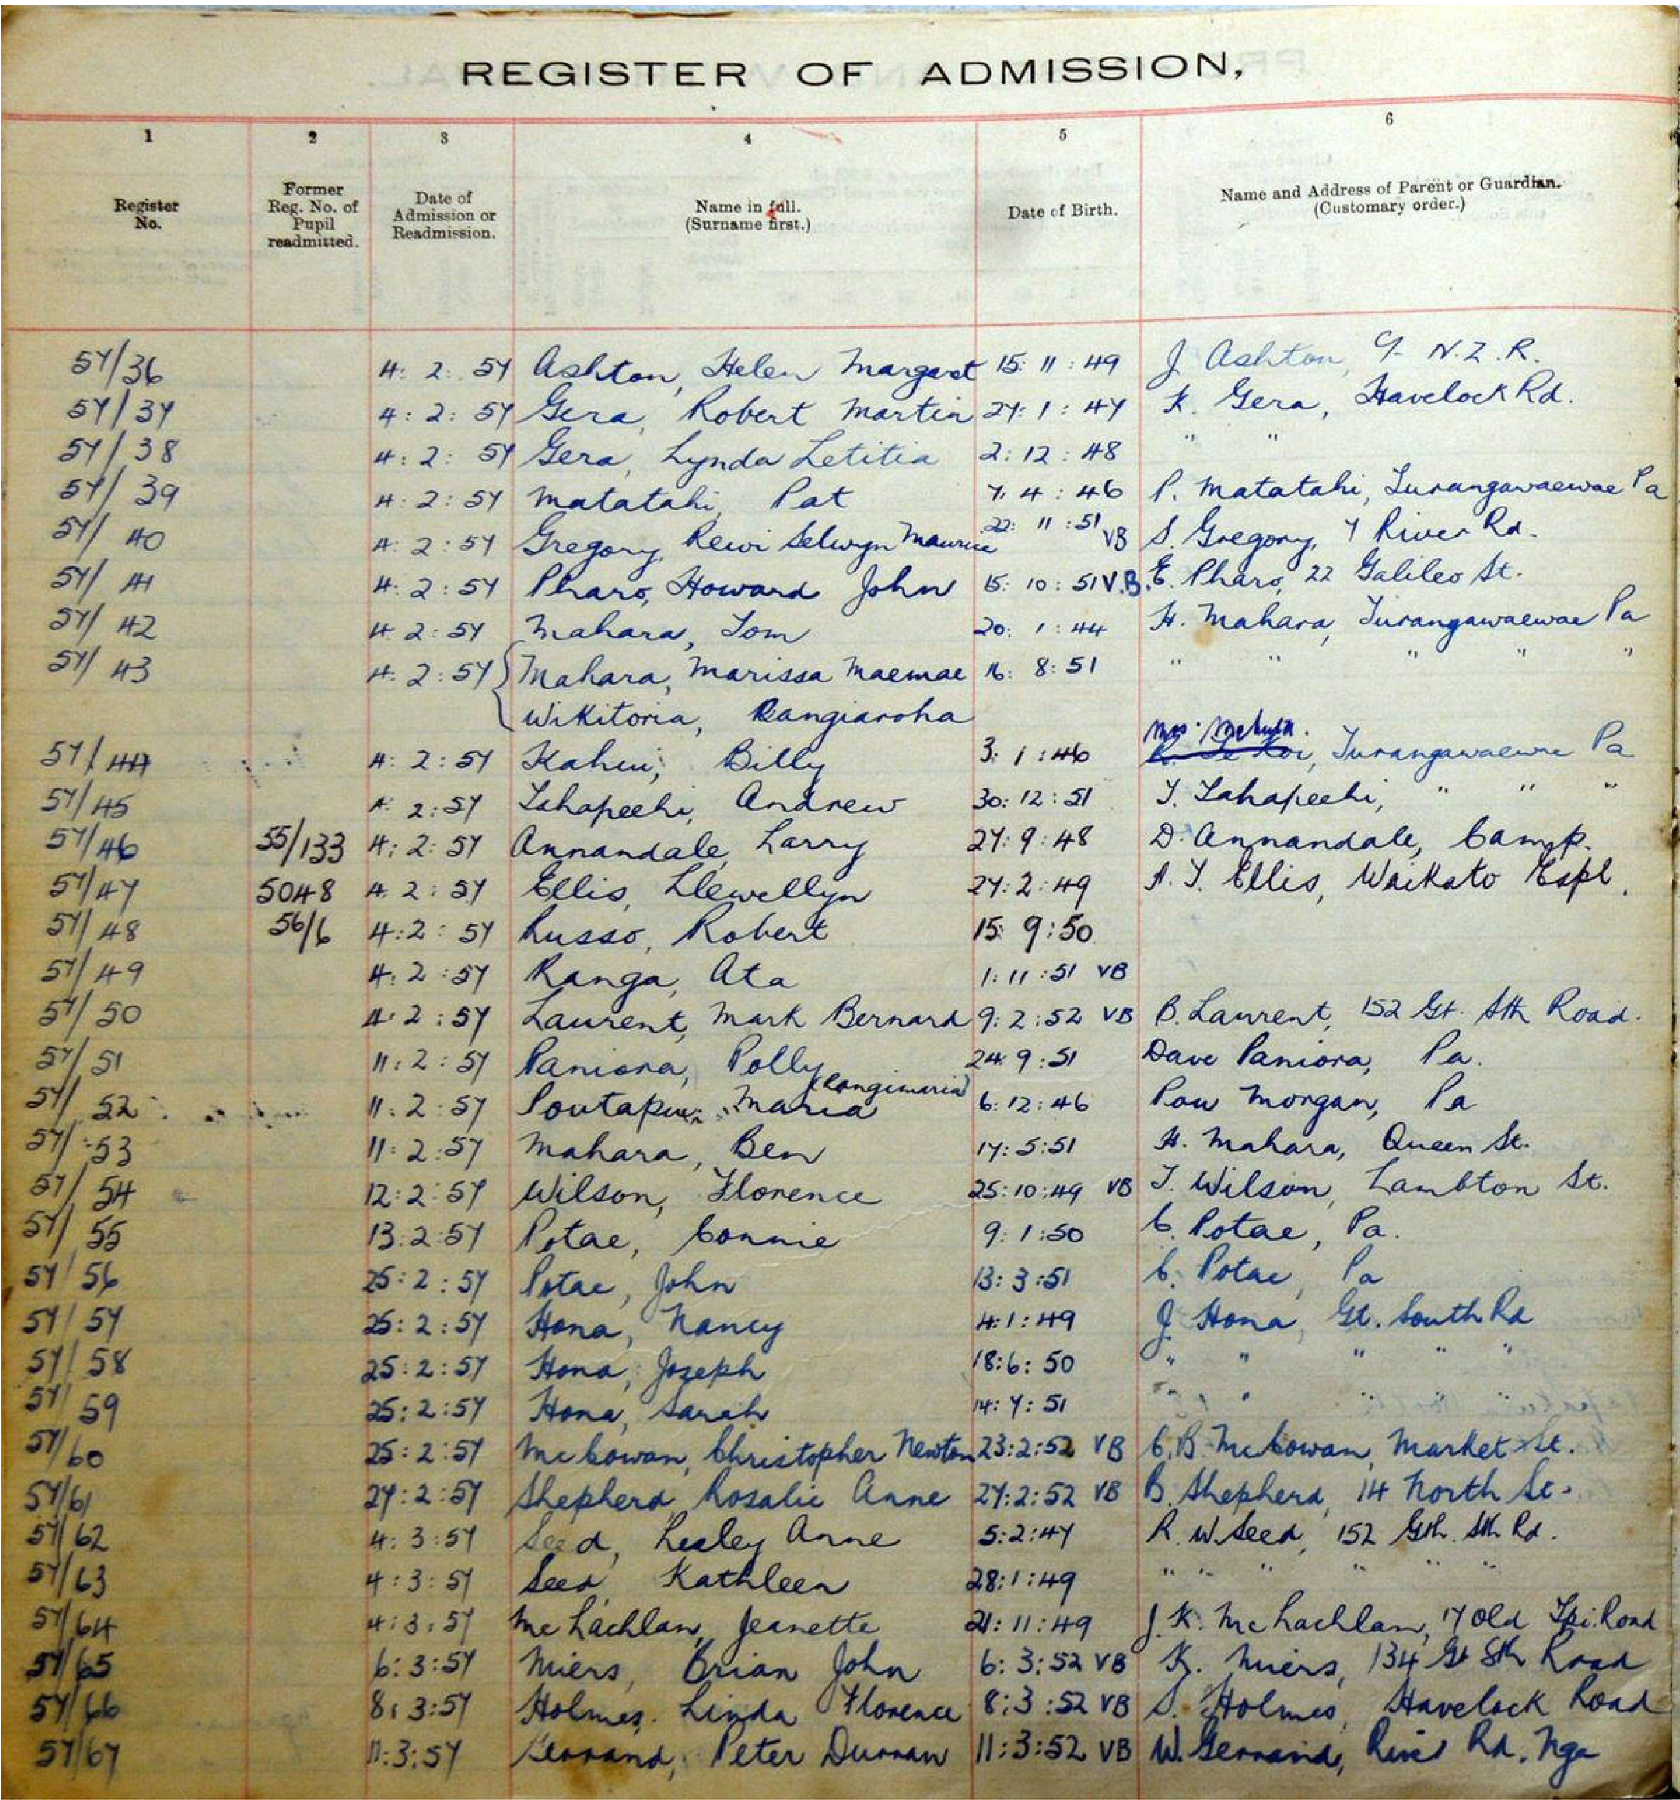 REGISTER OF ADMISSION,
1 2 3 4 5 6
Register No. Former Reg. No. of Pupil readmitted. Date of Admission or Readmission. Name in full. (Surname first.) Date of Birth. Name and Address of Parent or Guardian. (Customary order.)
57/36 4:2:57 Ashton, Helen Margaret 15:11:49 J. Ashton, C/- N.Z.R.
57/37 4:2:57 Gera, Robert Martin 27:1:47 K. Gera, Havelock Rd.
57/38 4:2:57 Gera, Lynda Letitia 2:12:48 " "
57/39 4:2:57 Matatahi, Pat 7:4:46 P. Matatahi, Turangawaewae Pa
57/40 4:2:57 Gregory, Rewi Selwyn Maurice 22:11:51 VB S. Gregory, 7 River Rd.
57/41 4:2:57 Pharo, Howard John 15:10:51 V.B. E. Pharo, 22 Galileo St.
57/42 4:2:57 Mahara, Tom 20:1:44 H. Mahara, Turangawaewae Pa
57/43 4:2:57 { Mahara, Marissa Maemae 16:8:51 " " " " "
Wikitoria, Rangiaroha
Mrs.
57/44 4:2:57 Kahui, Billy 3:1:46 Turangawaewae Pa
57/45 4:2:57 Tahapeehi, Andrew 30:12:51 T. Tahapeehi, " " "
57/46 55/133 4:2:57 Annandale, Larry 27:9:48 D. Annandale, Camp.
57/47 5048 4:2:57 Ellis, Llewellyn 27:2:49 A. T. Ellis, Waikato Espl.
57/48 56/6 4:2:57 Russo, Robert 15:9:50
57/49 4:2:57 Ranga, Ata 1:11:51 VB
57/50 4:2:57 Laurent, Mark Bernard 9:2:52 VB B. Laurent, 152 Gt. Sth Road.
57/51 11:2:57 Paniora, Polly 24:9:51 Dave Paniora, Pa.
(Rangimaria)
57/52 11:2:57 Poutapu, Maria 6:12:46 Pou Morgan, Pa
57/53 11:2:57 Mahara, Ben 17:5:51 H. Mahara, Queen St.
57/54 12:2:57 Wilson, Florence 25:10:49 VB T. Wilson, Lambton St.
57/55 13:2:57 Potae, Connie 9:1:50 C. Potae, Pa.
57/56 25:2:57 Potae, John 13:3:51 C. Potae, Pa
57/57 25:2:57 Hona, Nancy 4:1:49 J. Hona, Gt. South Rd
57/58 25:2:57 Hona, Joseph 18:6:50 " " " " "
57/59 25:2:57 Hona, Sarah 14:7:51 " " " " "
57/60 25:2:57 McCowan, Christopher Newton 23:2:52 VB C.B. McCowan, Market St.
57/61 27:2:57 Shepherd, Rosalie Anne 27:2:52 VB B. Shepherd, 14 North St.
57/62 4:3:57 Seed, Lesley Anne 5:2:47 R. W. Seed, 152 Gth. Sth Rd.
57/63 4:3:57 Seed, Kathleen 28:1:49 " " " " " "
57/64 4:3:57 McLachlan, Jeanette 21:11:49 J. K. McLachlan, 17 Old Tpi. Road
57/65 6:3:57 Miers, Brian John 6:3:52 VB K. Miers, 134 Gt Sth Road
57/66 8:3:57 Holmes, Linda Florence 8:3:52 VB S. Holmes, Havelock Road
57/67 11:3:57 Gerrand, Peter Durran 11:3:52 VB W. Gerrand, River Rd. Nga